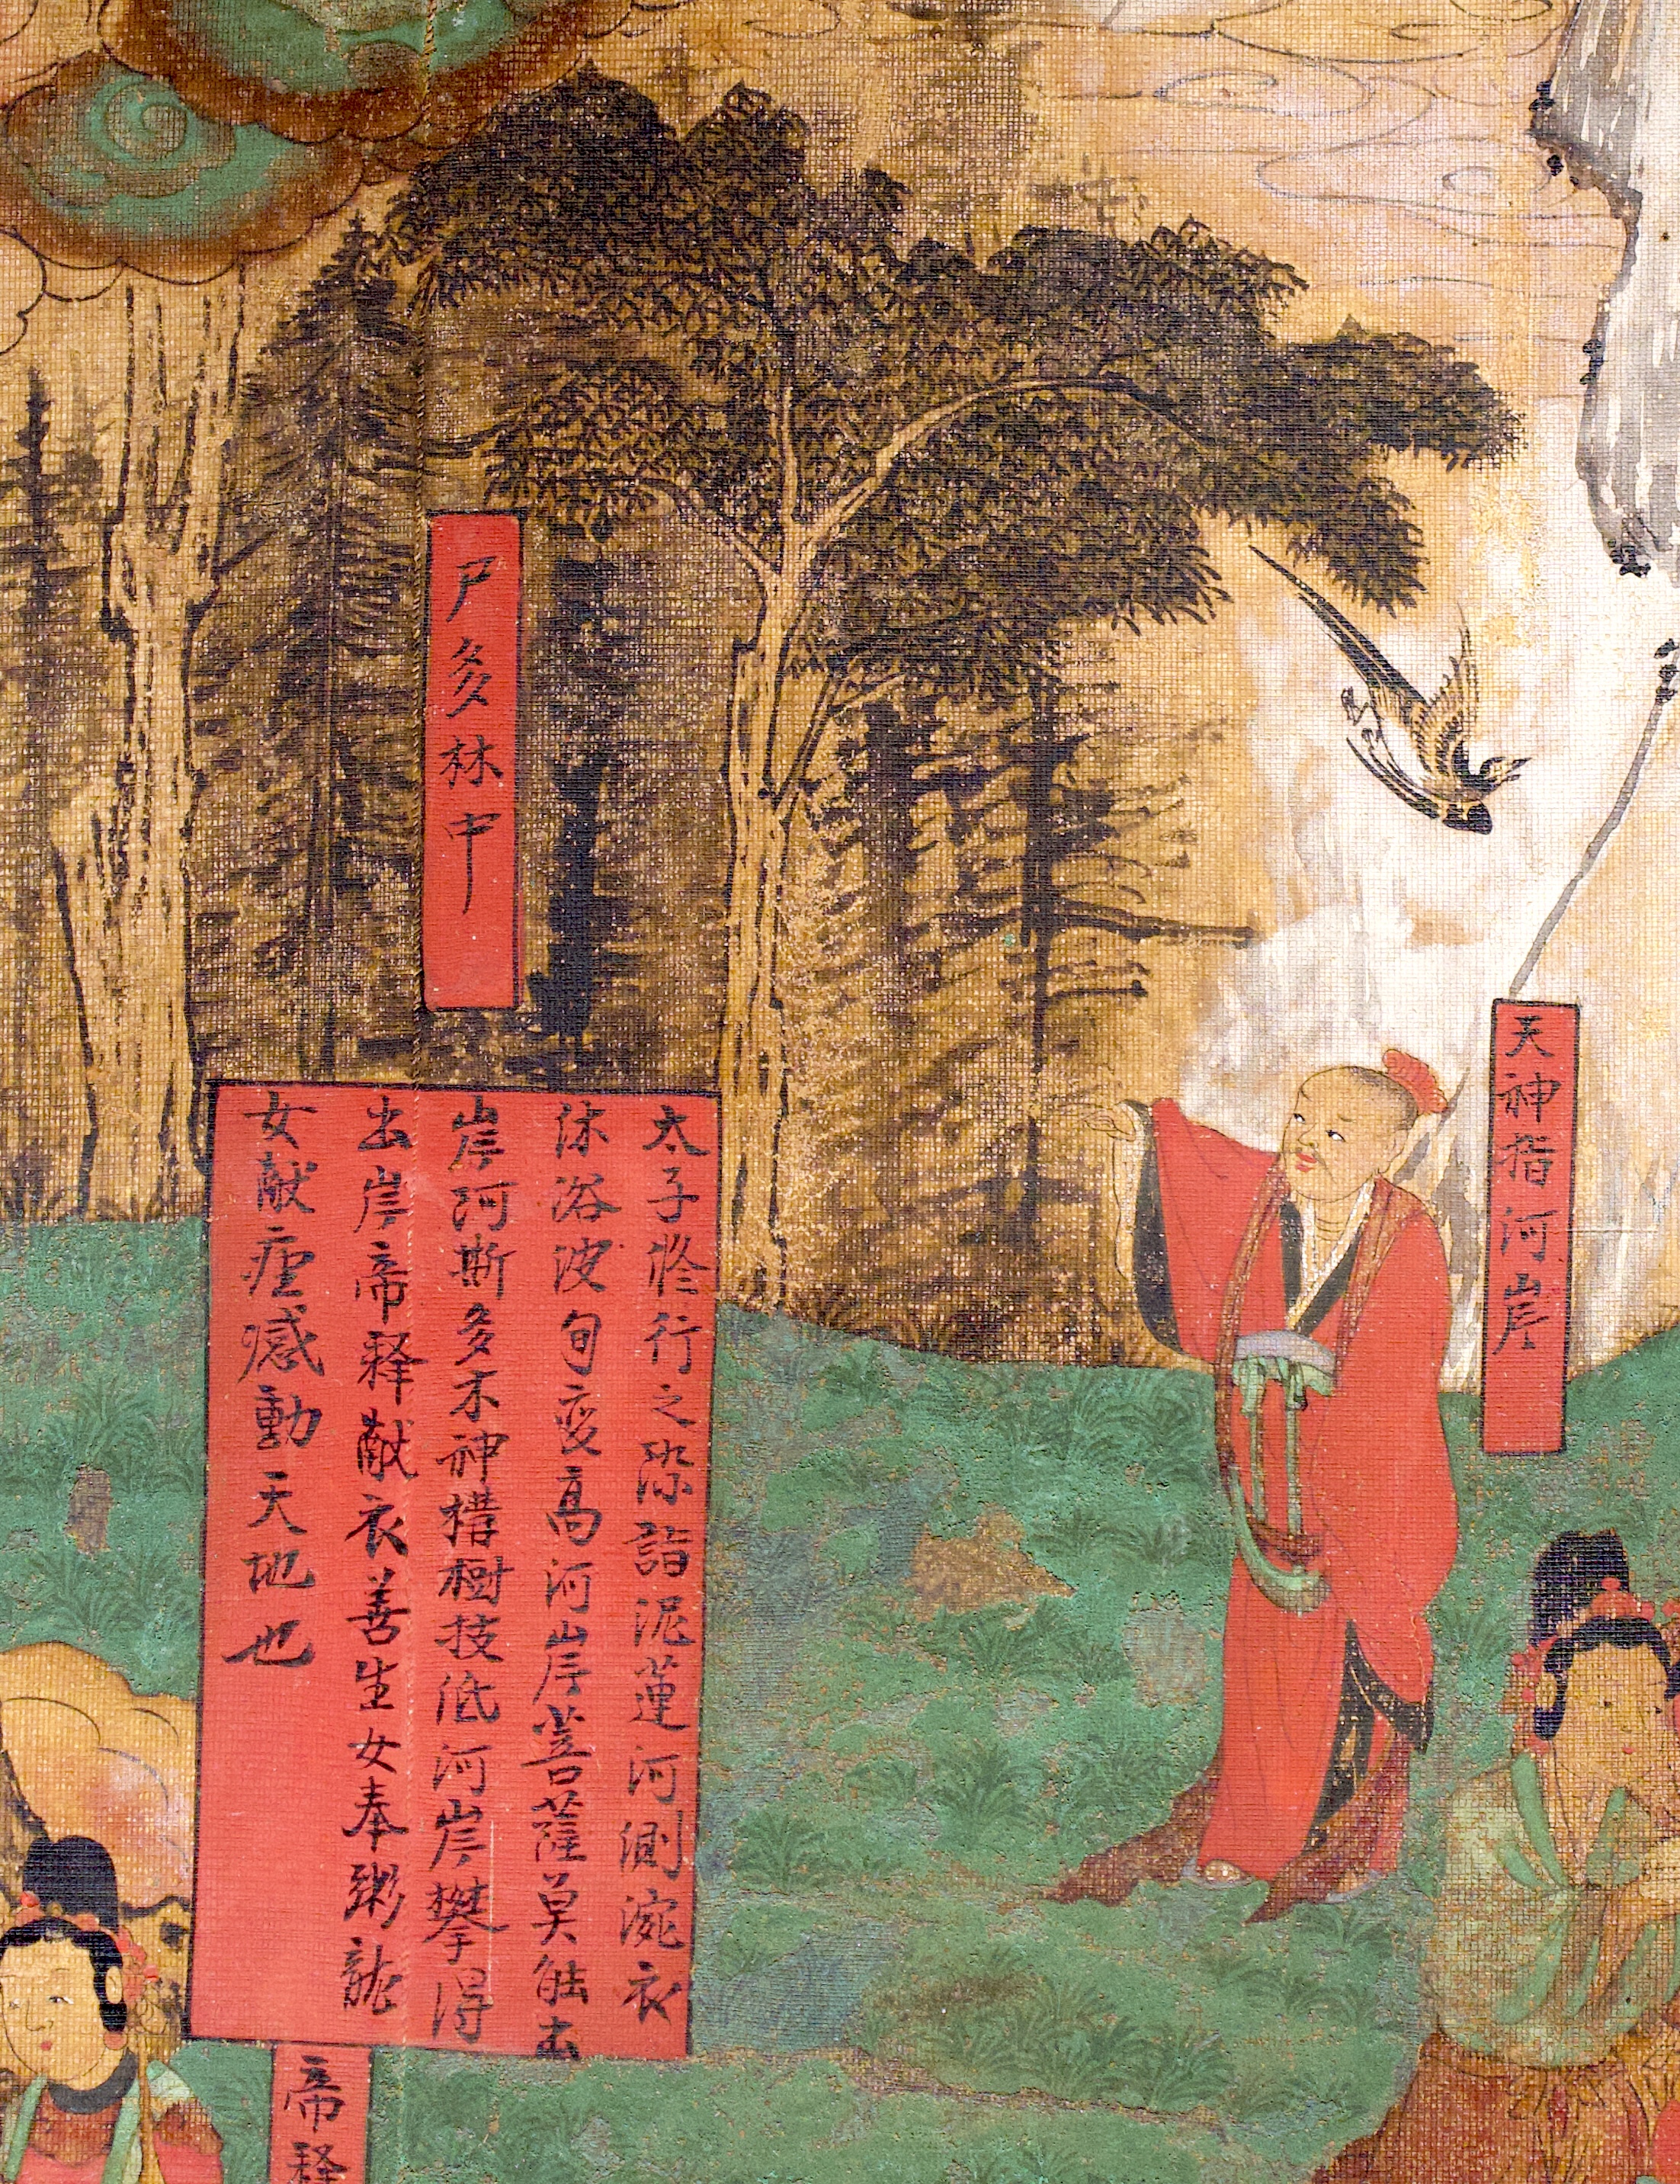 天神指河岸
尸多林中
太子修行之深詣泥蓮河測漉衣
沐浴波旬変高河岸菩薩莫能出
岸河斯多木神搆樹技低河岸攀得
出岸帝释献衣善生女奉粥龍
女献座感動天地也
帝释